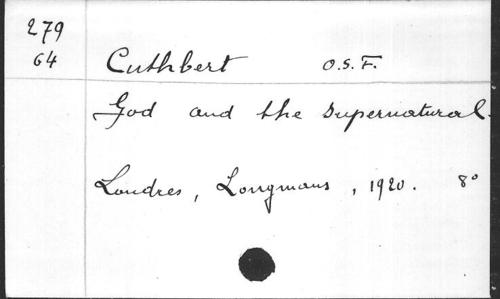 279
64
Cuthbert O.S.F.
God and the supernatural.
Londres, Longmans, 1920. 8°